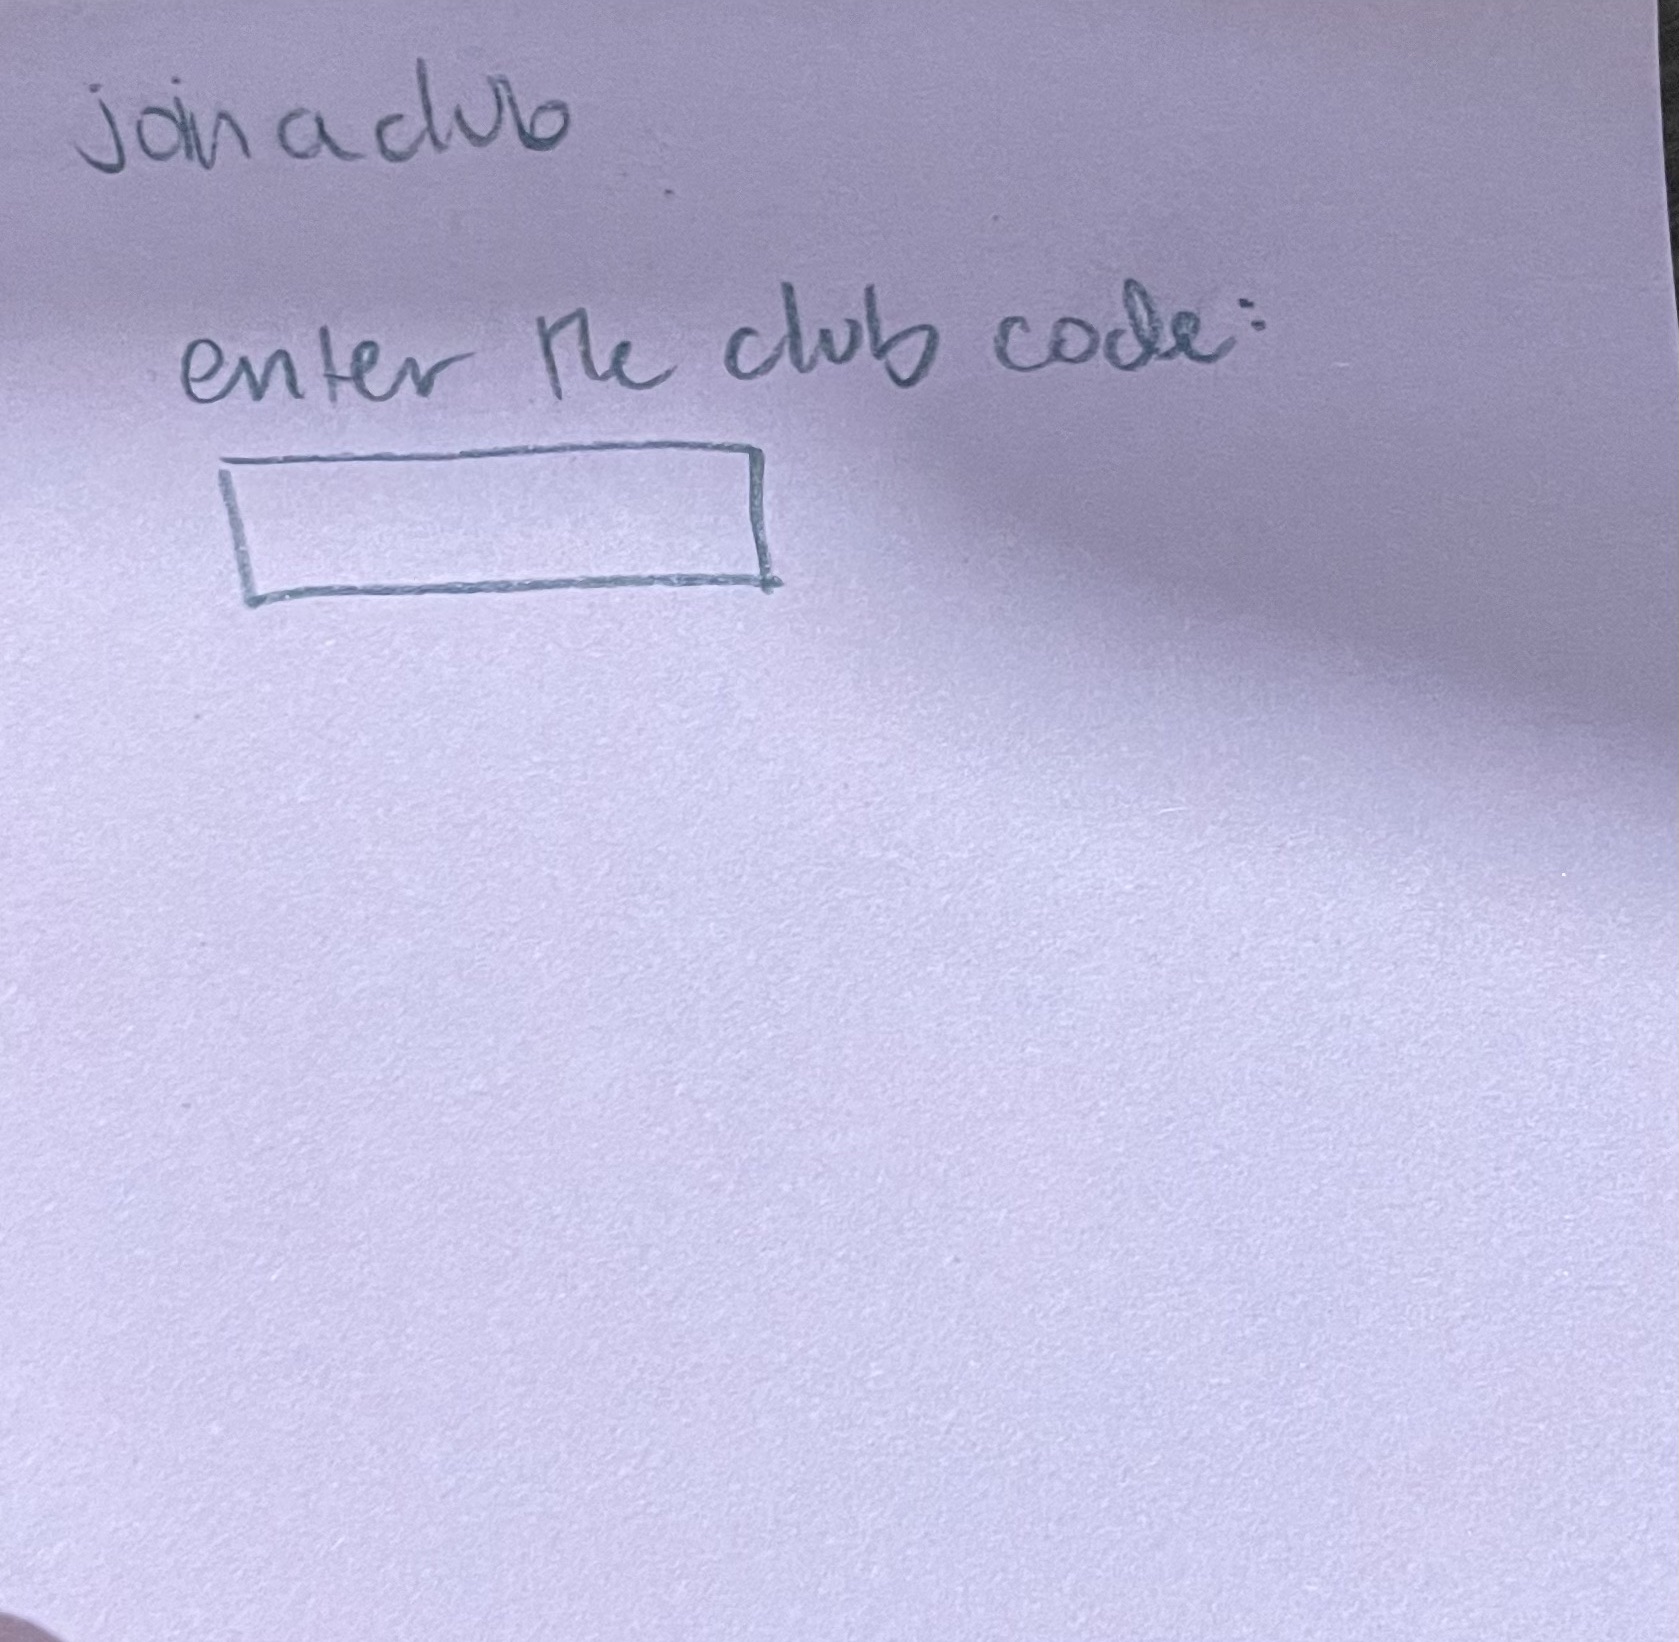 join a club
enter the club code: